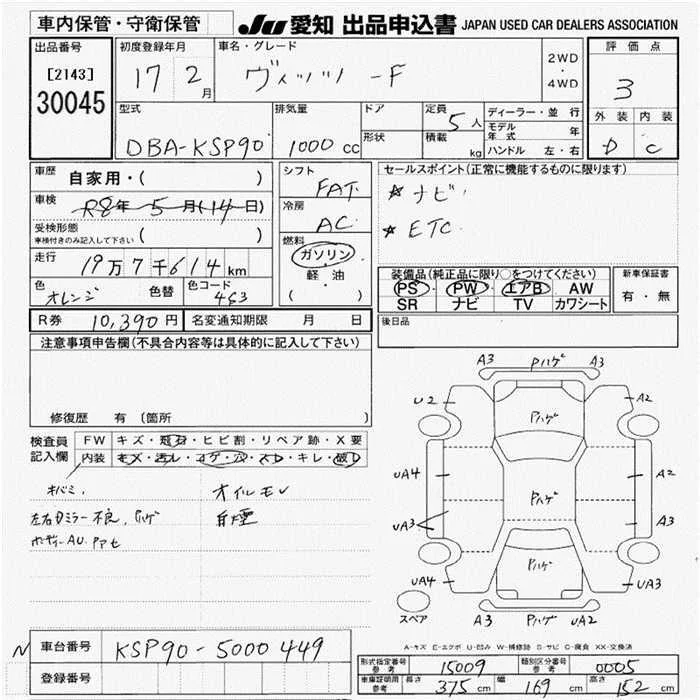 車内保管・守衛保管
JU 愛知 出品申込書 JAPAN USED CAR DEALERS ASSOCIATION
出品番号
[2143]
30045
初度登録年月
17 2月
車名・グレード
ヴィッツ -F
2WD
・
4WD
評価点
3
外装 内装
D C
型式
DBA-KSP90
排気量
1000 cc
ドア
形状
定員
5人
積載
kg
ディーラー・並行
モデル年式 年
ハンドル 左・右
車歴
自家用・( )
車検
R8年 5月(14日)
受検形態
車検付きのみ記入して下さい ( )
走行
19万7千614km
色
オレンジ
色替
色コード
4G3
シフト
FAT
冷房
AC
燃料
ガソリン
軽油
( )
セールスポイント(正常に機能するものに限ります)
★ナビ
★ETC
装備品(純正品に限り○をつけてください)
PS PW エアB AW
SR ナビ TV カワシート
新車保証書
有・無
R券 10,390円 名変通知期限 月 日
後日品
注意事項申告欄(不具合内容等は具体的に記入して下さい)
修復歴 有 (箇所 )
検査員
記入欄
FW キズ・飛石・ヒビ割・リペア跡・X要
内装 キズ・汚レ・コゲ・穴・スレ・キレ・破レ
オイルモレ
白煙
左右Dミラー不良、Pハゲ
A3 Pハゲ A3
U2 A2
Pハゲ
UA4 A2
Pハゲ
UA3 A3
Pハゲ
UA4 UA3
スペア
A3 Pハゲ UA2
A-キズ E-エクボ U-凹み W-補修跡 S-サビ C-腐食 XX-交換済
N 車台番号 KSP90-5000449
登録番号
形式指定番号
参考
15009
類別区分番号
参考
0005
車庫証明用
参考
長さ 375 cm 幅 169 cm 高さ 152 cm